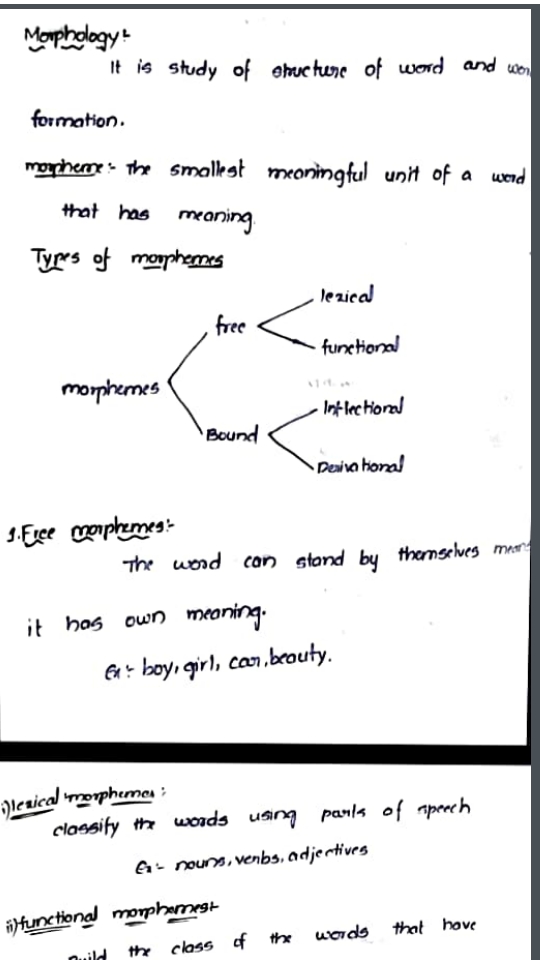 Morphology:-
It is study of structure of word and
formation.
morpheme:- The smallest meaningful unit of a word
that has meaning.
Types of morphemes
lexical
free
functional
morphemes
Inflectional
Bound
Derivational
1.Free morphemes:-
The word can stand by themselves means
it has own meaning.
Ex:- boy, girl, car, beauty.
i)lexical morphemes:
classify the words using parts of speech
Ex:- nouns, verbs, adjectives
ii)functional morphemes:-
the class of the words that have